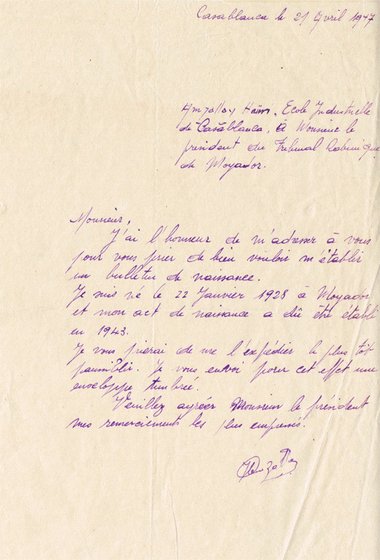 Casablanca le 21 Avril 1947
Amzallag Haïm, Ecole Industrielle
de Casablanca, à Monsieur le
président du Tribunal Rabinique
de Mogador.
Monsieur,
J'ai l'honneur de m'adresser à vous
pour vous prier de bien vouloir m'établir
un bulletin de naissance.
Je suis né le 22 Janvier 1928 à Mogador
et mon act de naissance a dû être établi
en 1943.
Je vous prierai de me l'expédier le plus tôt
possible. Je vous envoi pour cet effet une
enveloppe timbrée.
Veuillez agréer Monsieur le président
mes remerciements les plus empressés.